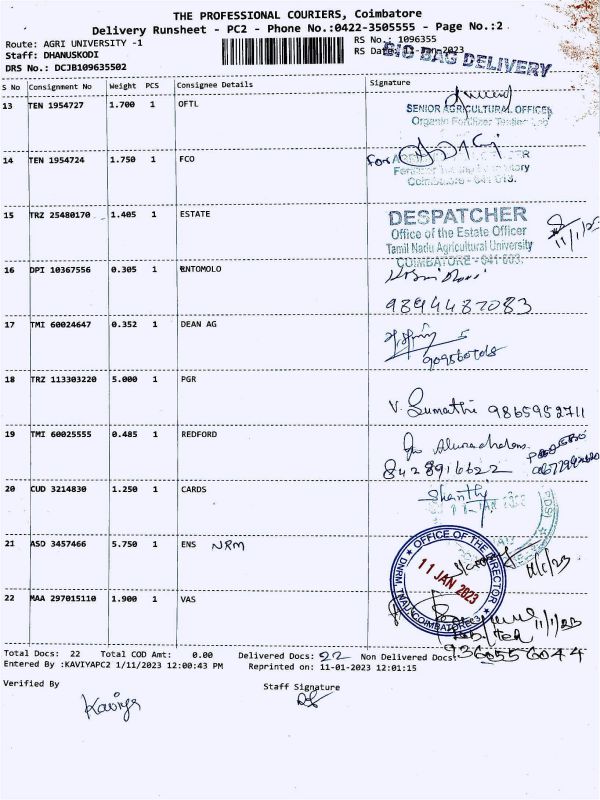 THE PROFESSIONAL COURIERS, Coimbatore
Delivery Runsheet - PC2 - Phone No.:0422-3505555 - Page No.:2
Route: AGRI UNIVERSITY -1
RS No.: 1096355
Staff: DHANUSKODI
RS Date: 11-Jan-2023
BIG BAG DELIVERY
DRS No.: DCJB109635502
S No Consignment No Weight PCS Consignee Details Signature
13 TEN 1954727 1.700 1 OFTL
SENIOR AGRICULTURAL OFFICER
Organic Fertilizer Testing Lab
14 TEN 1954724 1.750 1 FCO
For
Coimbatore - 641 013.
15 TRZ 25480170 1.405 1 ESTATE
DESPATCHER
Office of the Estate Officer
Tamil Nadu Agricultural University
COIMBATORE - 641 003.
11/1/23
16 DPI 10367556 0.305 1 ENTOMOLO
9894487083
17 TMI 60024647 0.352 1 DEAN AG
18 TRZ 113303220 5.000 1 PGR
V. Sumathi 9865952711
19 TMI 60025555 0.485 1 REDFORD
8428916622
20 CUD 3214830 1.250 1 CARDS
Shanthi
21 ASD 3457466 5.750 1 ENS NRM
OFFICE OF THE DIRECTOR
11 JAN 2023
DNRM, TNAU, COIMBATORE-3
11/1/23
22 MAA 297015110 1.900 1 VAS
11/1/23
9360556044
Total Docs: 22 Total COD Amt: 0.00 Delivered Docs: 22 Non Delivered Docs:
Entered By :KAVIYAPC2 1/11/2023 12:00:43 PM Reprinted on: 11-01-2023 12:01:15
Verified By Staff Signature
Kaviya